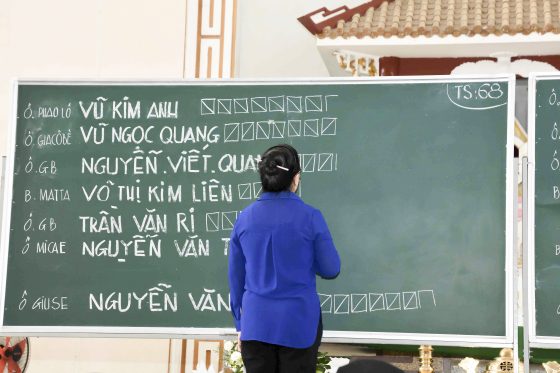 TS:68
Ô. PHAO LÔ VŨ KIM ANH
Ô. GIACÔBÊ VŨ NGỌC QUANG
Ô. GB NGUYỄN. VIẾT. QUA
B. MATTA VÕ THỊ KIM LIÊN
Ô. GB TRẦN VĂN RI
Ô MICAE NGUYỄN VĂN T
Ô GIUSE NGUYỄN VĂN